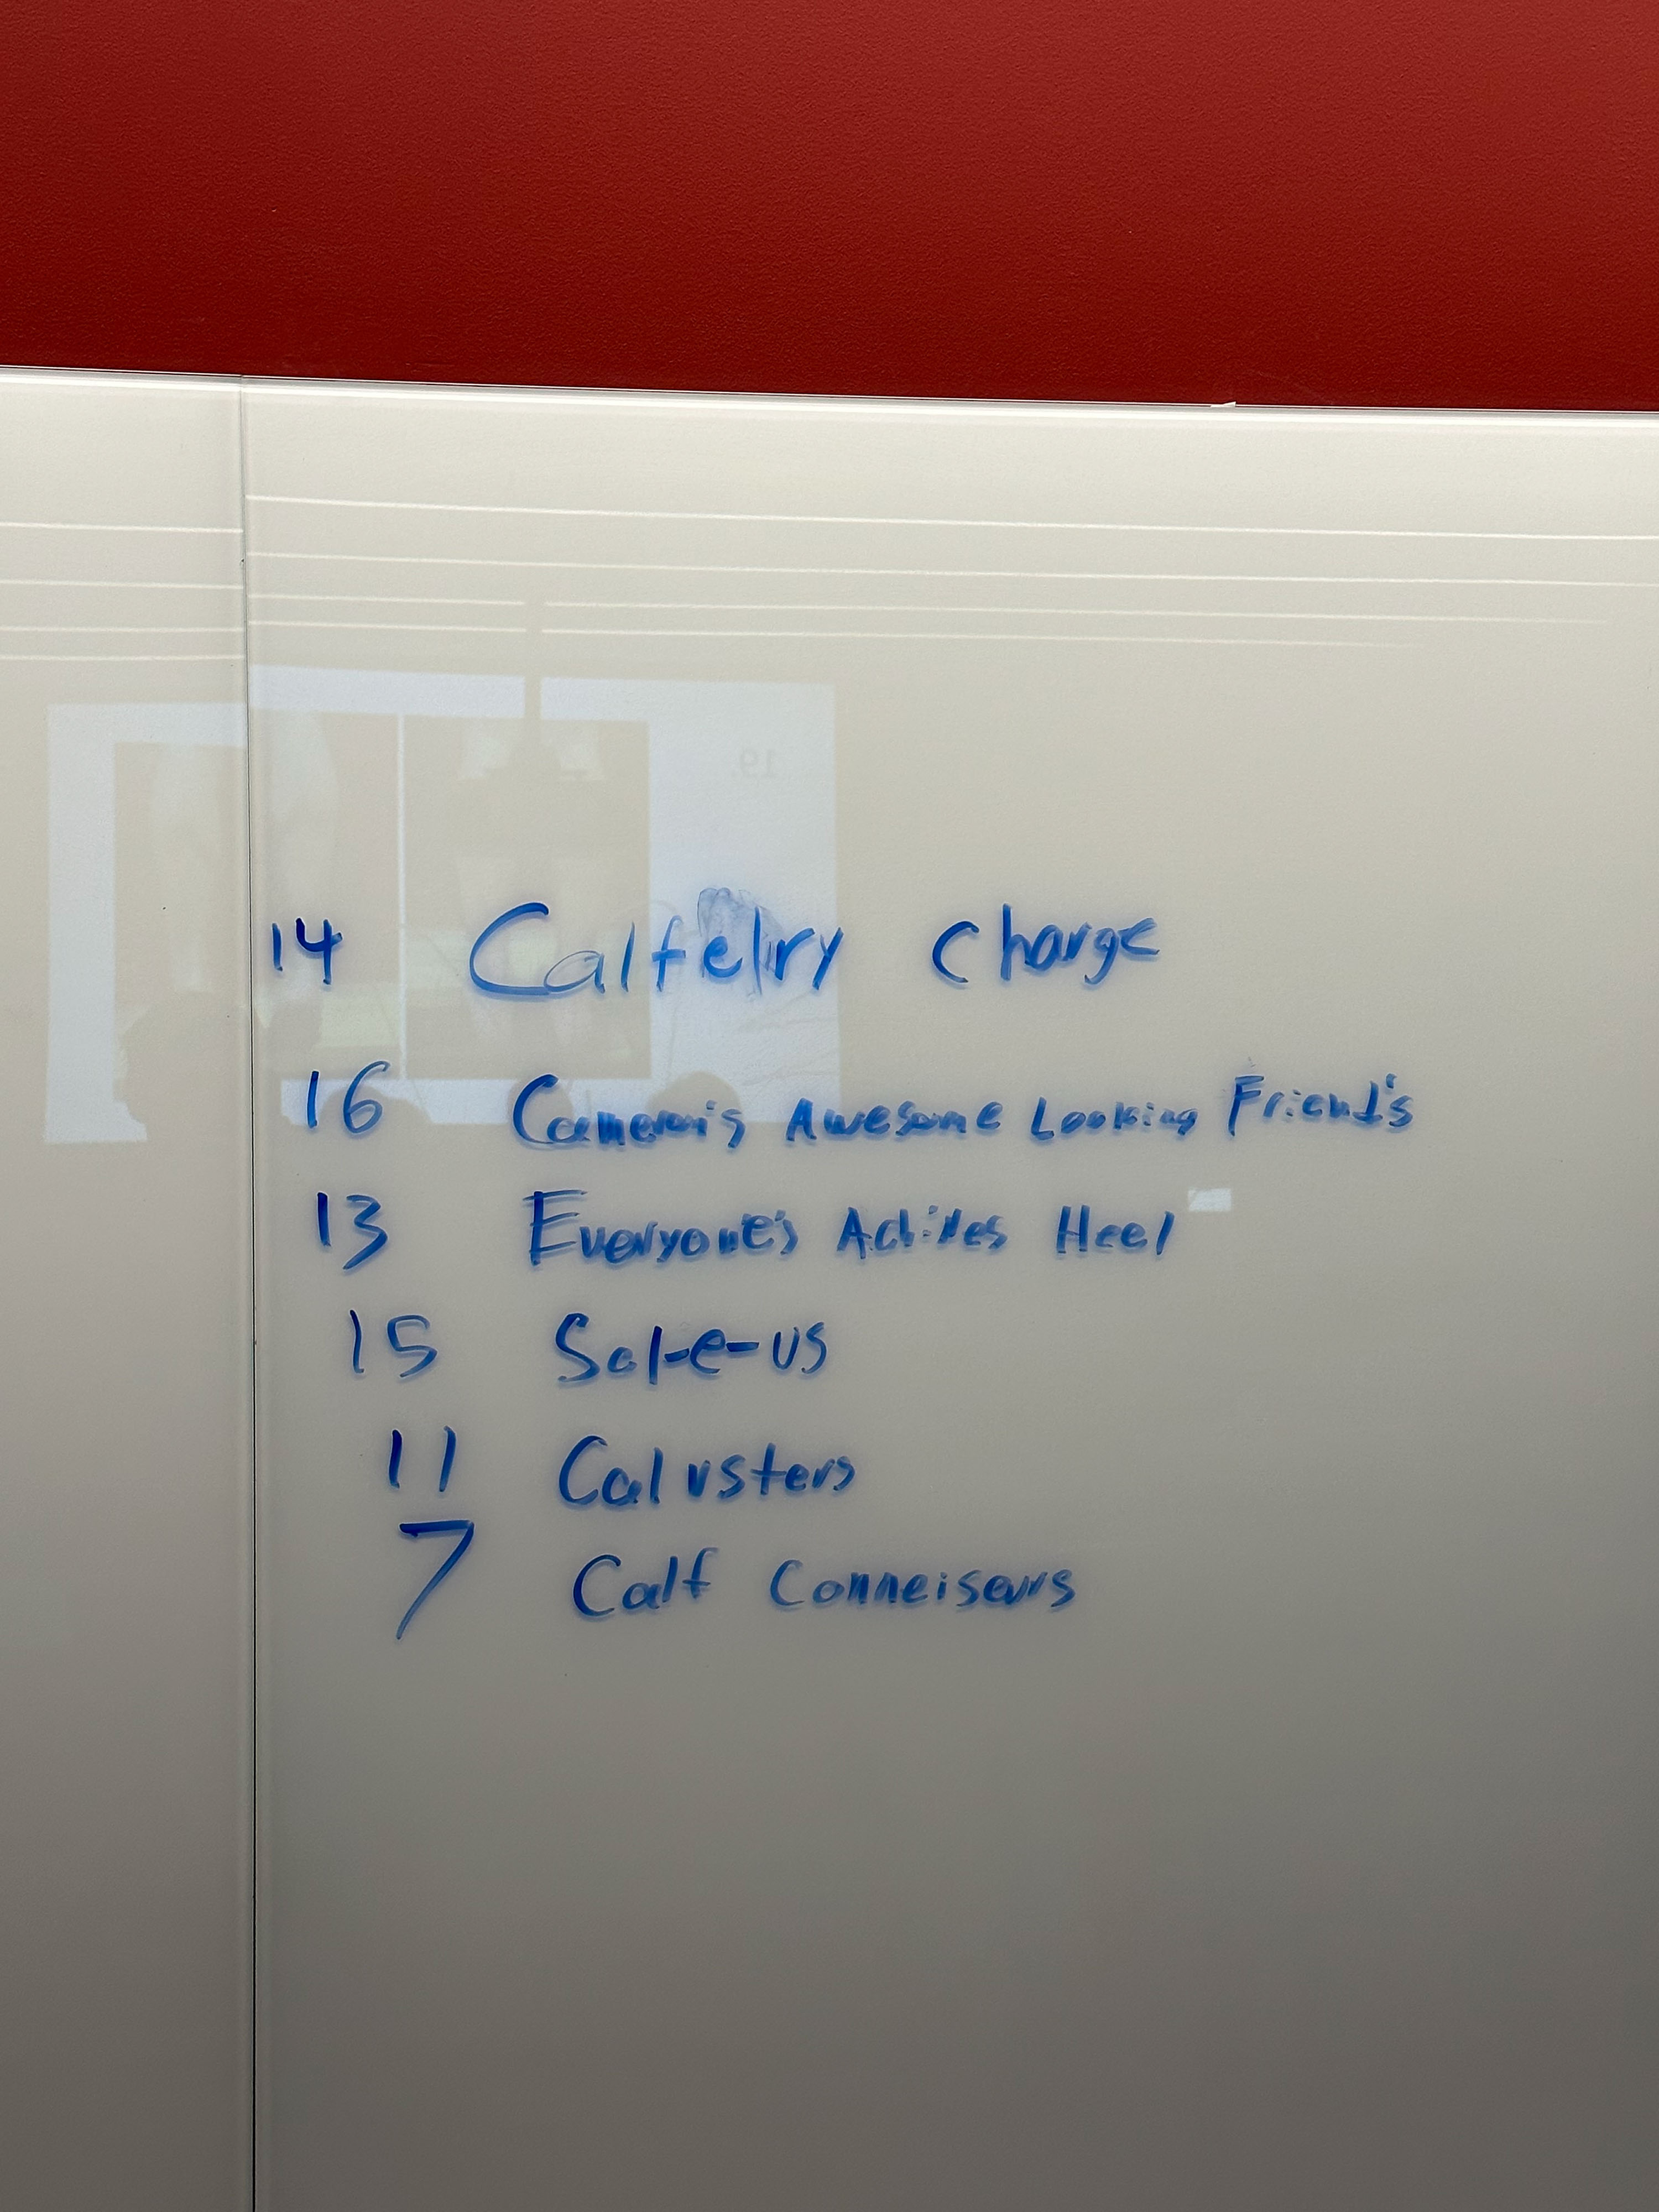 19.
14 Calfelry Charge
16 Cameron's Awesome Looking Friend's
13 Everyone's Achilles Heel
15 Sol-e-us
11 Calvsters
7 Calf Conneiseurs